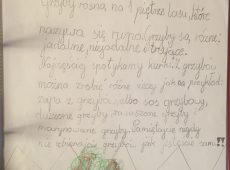 Grzyby rosną na 1 piętrze lasu, które
nazywa się runo. Grzyby są różne:
jadalne, niejadalne i trujące.
Najczęściej spotykamy kurki. Z grzybów
można zrobić różne rzeczy jak na przykład:
zupa z grzybów albo sos grzybowy,
duszone grzyby, suszone grzyby i
marynowane grzyby. Pamiętajcie nigdy
nie zbierajcie grzybów jak jesteście sami!!